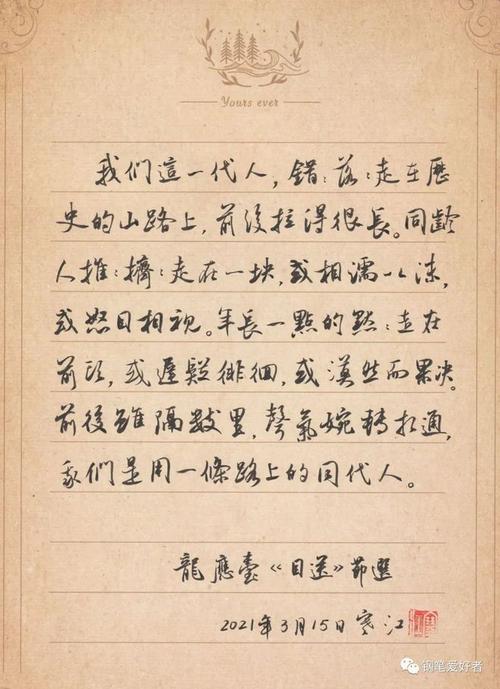 Yours ever
我们這一代人，錯:落:走在歷
史的山路上，前後拉得很長。同齡
人推:擠:走在一块，或相濡以沫，
或怒目相视。年長一點的默:走在
前頭，或遲疑徘徊，或漠然而果决。
前後雖隔數里，聲氣婉轉相通，
我们是用一條路上的同代人。
龍應臺《目送》節選
2021年3月15日 寒江
钢笔爱好者